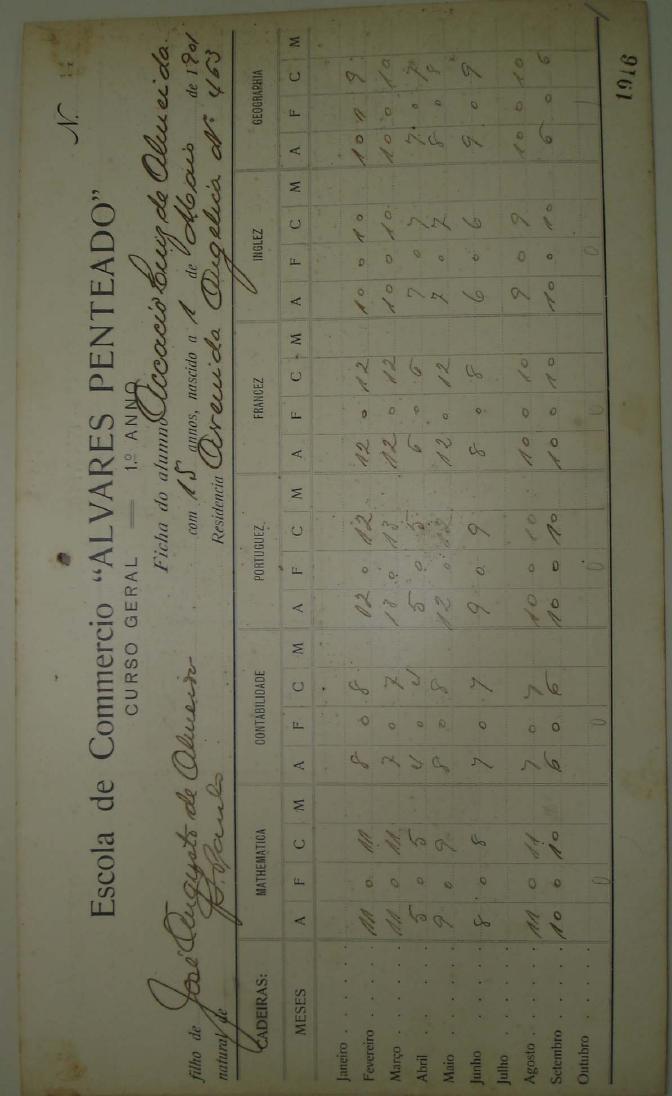 Escola de Commercio "ALVARES PENTEADO"
N.
CURSO GERAL — 1.º ANNO
Ficha do alumno Accacio de Almeida
filho de José Augusto de Almeida com 15 annos, nascido a 1 de Maio de 1901
natural de S. Paulo Residencia Avenida Angelica Nº 463
CADEIRAS: MATHEMATICA CONTABILIDADE PORTUGUEZ FRANCEZ INGLEZ GEOGRAPHIA
MESES A F C M A F C M A F C M A F C M A F C M A F C M
Janeiro . . . . .
Fevereiro . . . . 11 0 11 8 0 8 12 0 12 12 0 12 10 0 10 10 9
Março . . . . . 11 0 11 7 0 7 13 0 13 12 0 12 10 0 10 10 0 10
Abril . . . . . 5 0 5 4 0 4 5 0 5 6 0 6 7 0 7 7 0 7
Maio . . . . . 9 0 9 8 0 8 12 0 12 12 0 12 7 0 7 8 0 8
Junho . . . . . 8 0 8 7 0 7 9 0 9 8 0 8 6 0 6 9 0 9
Julho . . . . .
Agosto . . . . . 11 0 11 7 0 7 10 0 10 10 0 10 9 0 9 10 0 10
Setembro . . . . 10 0 10 6 0 6 10 0 10 10 0 10 10 0 10 6 0 6
Outubro . . . . 0 0 0 0 0
1916